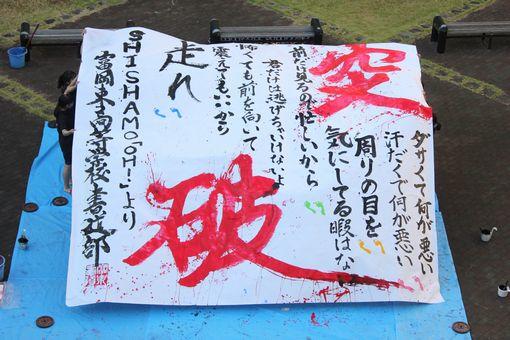 突破
ダサくて何が悪い
汗だくで何が悪い
周りの目を
気にしてる暇はない
前だけ見るので忙しいから
君だけは逃げちゃいけないよ
怖くても前を向いて
震えてもいいから
走れ
SHISHAMO「OH!」より
富岡東高等学校書道部